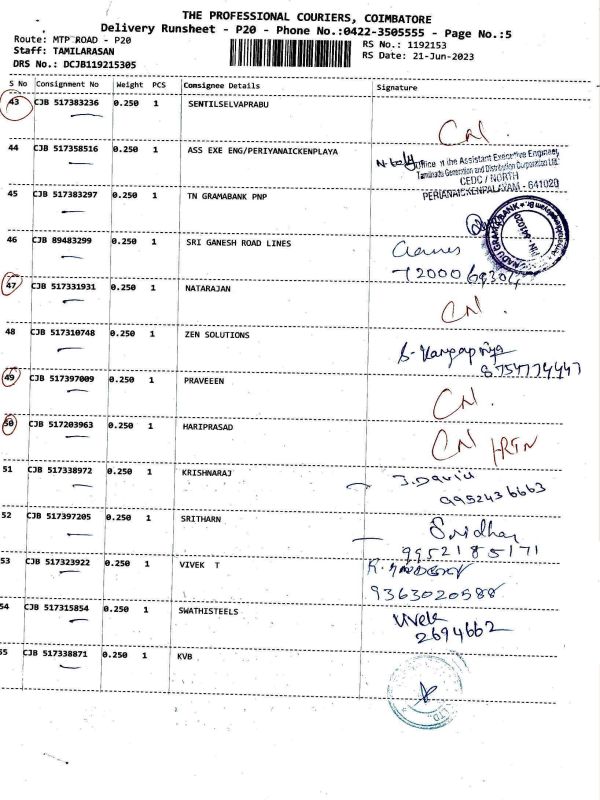 THE PROFESSIONAL COURIERS, COIMBATORE
Delivery Runsheet - P20 - Phone No.:0422-3505555 - Page No.:5
Route: MTP ROAD - P20
RS No.: 1192153
Staff: TAMILARASAN
RS Date: 21-Jun-2023
DRS No.: DCJB119215305
S No Consignment No Weight PCS Comsignee Details Signature
43 CJB 517383236 0.250 1 SENTILSELVAPRABU
CN.
44 CJB 517358516 0.250 1 ASS EXE ENG/PERIYANAICKENPLAYA
Office of the Assistant Executive Engineer
Tamilnadu Generation and Distribution Corporation Ltd.
CEDC / NORTH
PERIANAICKENPALAYAM - 641020
45 CJB 517383297 0.250 1 TN GRAMABANK PNP
46 CJB 89483299 0.250 1 SRI GANESH ROAD LINES
47 CJB 517331931 0.250 1 NATARAJAN
CN.
48 CJB 517310748 0.250 1 ZEN SOLUTIONS
8754774447
49 CJB 517397009 0.250 1 PRAVEEEN
CN.
50 CJB 517203963 0.250 1 HARIPRASAD
CN
51 CJB 517338972 0.250 1 KRISHNARAJ
J. David
9952436663
52 CJB 517397205 0.250 1 SRITHARN
Sridhar
9952185171
53 CJB 517323922 0.250 1 VIVEK T
9363020588
54 CJB 517315854 0.250 1 SWATHISTEELS
2694662
55 CJB 517338871 0.250 1 KVB